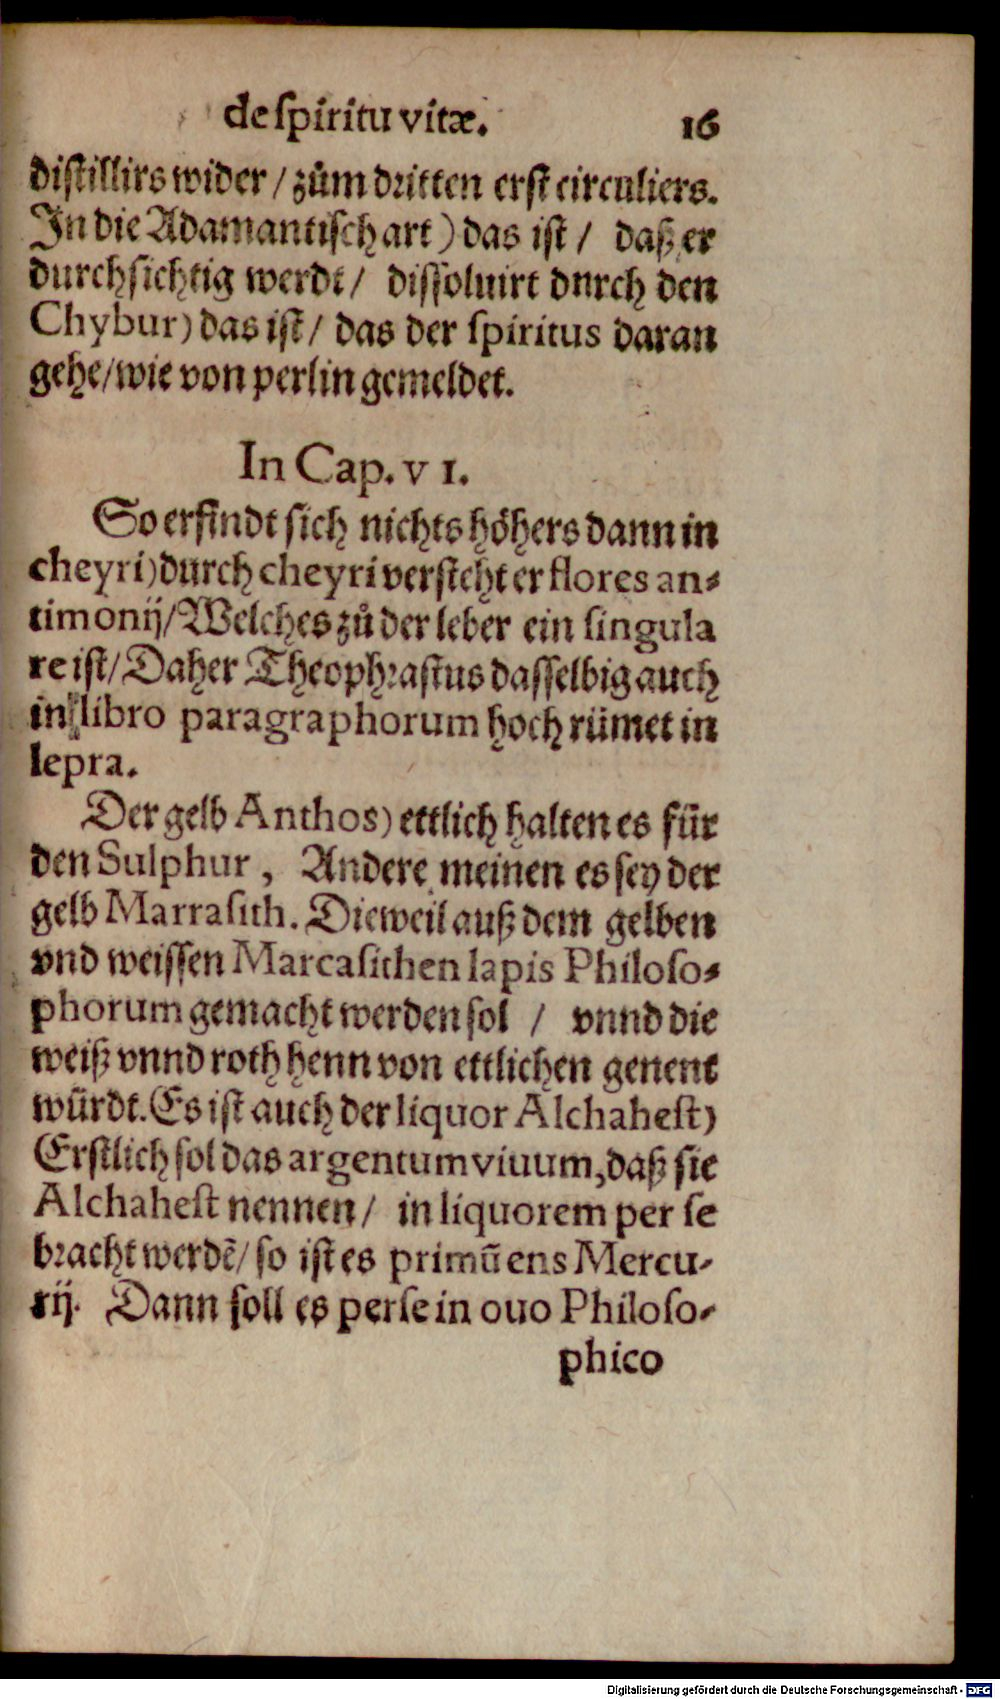 de spiritu vitæ. 16
distillirs wider / zům dritten erst circuliers.
In die Adamantisch art) das ist / daß er
durchsichtig werdt / dissoluirt dnrch den
Chybur) das ist / das der spiritus daran
gehe / wie von perlin gemeldet.
In Cap. v I.
So erfindt sich nichts höhers dann in
cheyri) durch cheyri versteht er flores an-
timonij / Welches zů der leber ein singula
re ist / Daher Theophrastus dasselbig auch
in libro paragraphorum hoch rümet in
lepra.
Der gelb Anthos) ettlich halten es für
den Sulphur, Andere meinen es sey der
gelb Marrasith. Dieweil auß dem gelben
vnd weissen Marcasithen lapis Philoso-
phorum gemacht werden sol / vnnd die
weiß vnnd roth henn von ettlichen genent
würdt. Es ist auch der liquor Alchahest)
Erstlich sol das argentum viuum, daß sie
Alchahest nennen / in liquorem per se
bracht werdē / so ist es primū ens Mercu-
rij. Dann soll es per se in ouo Philoso-
phico
Digitalisierung gefördert durch die Deutsche Forschungsgemeinschaft - DFG